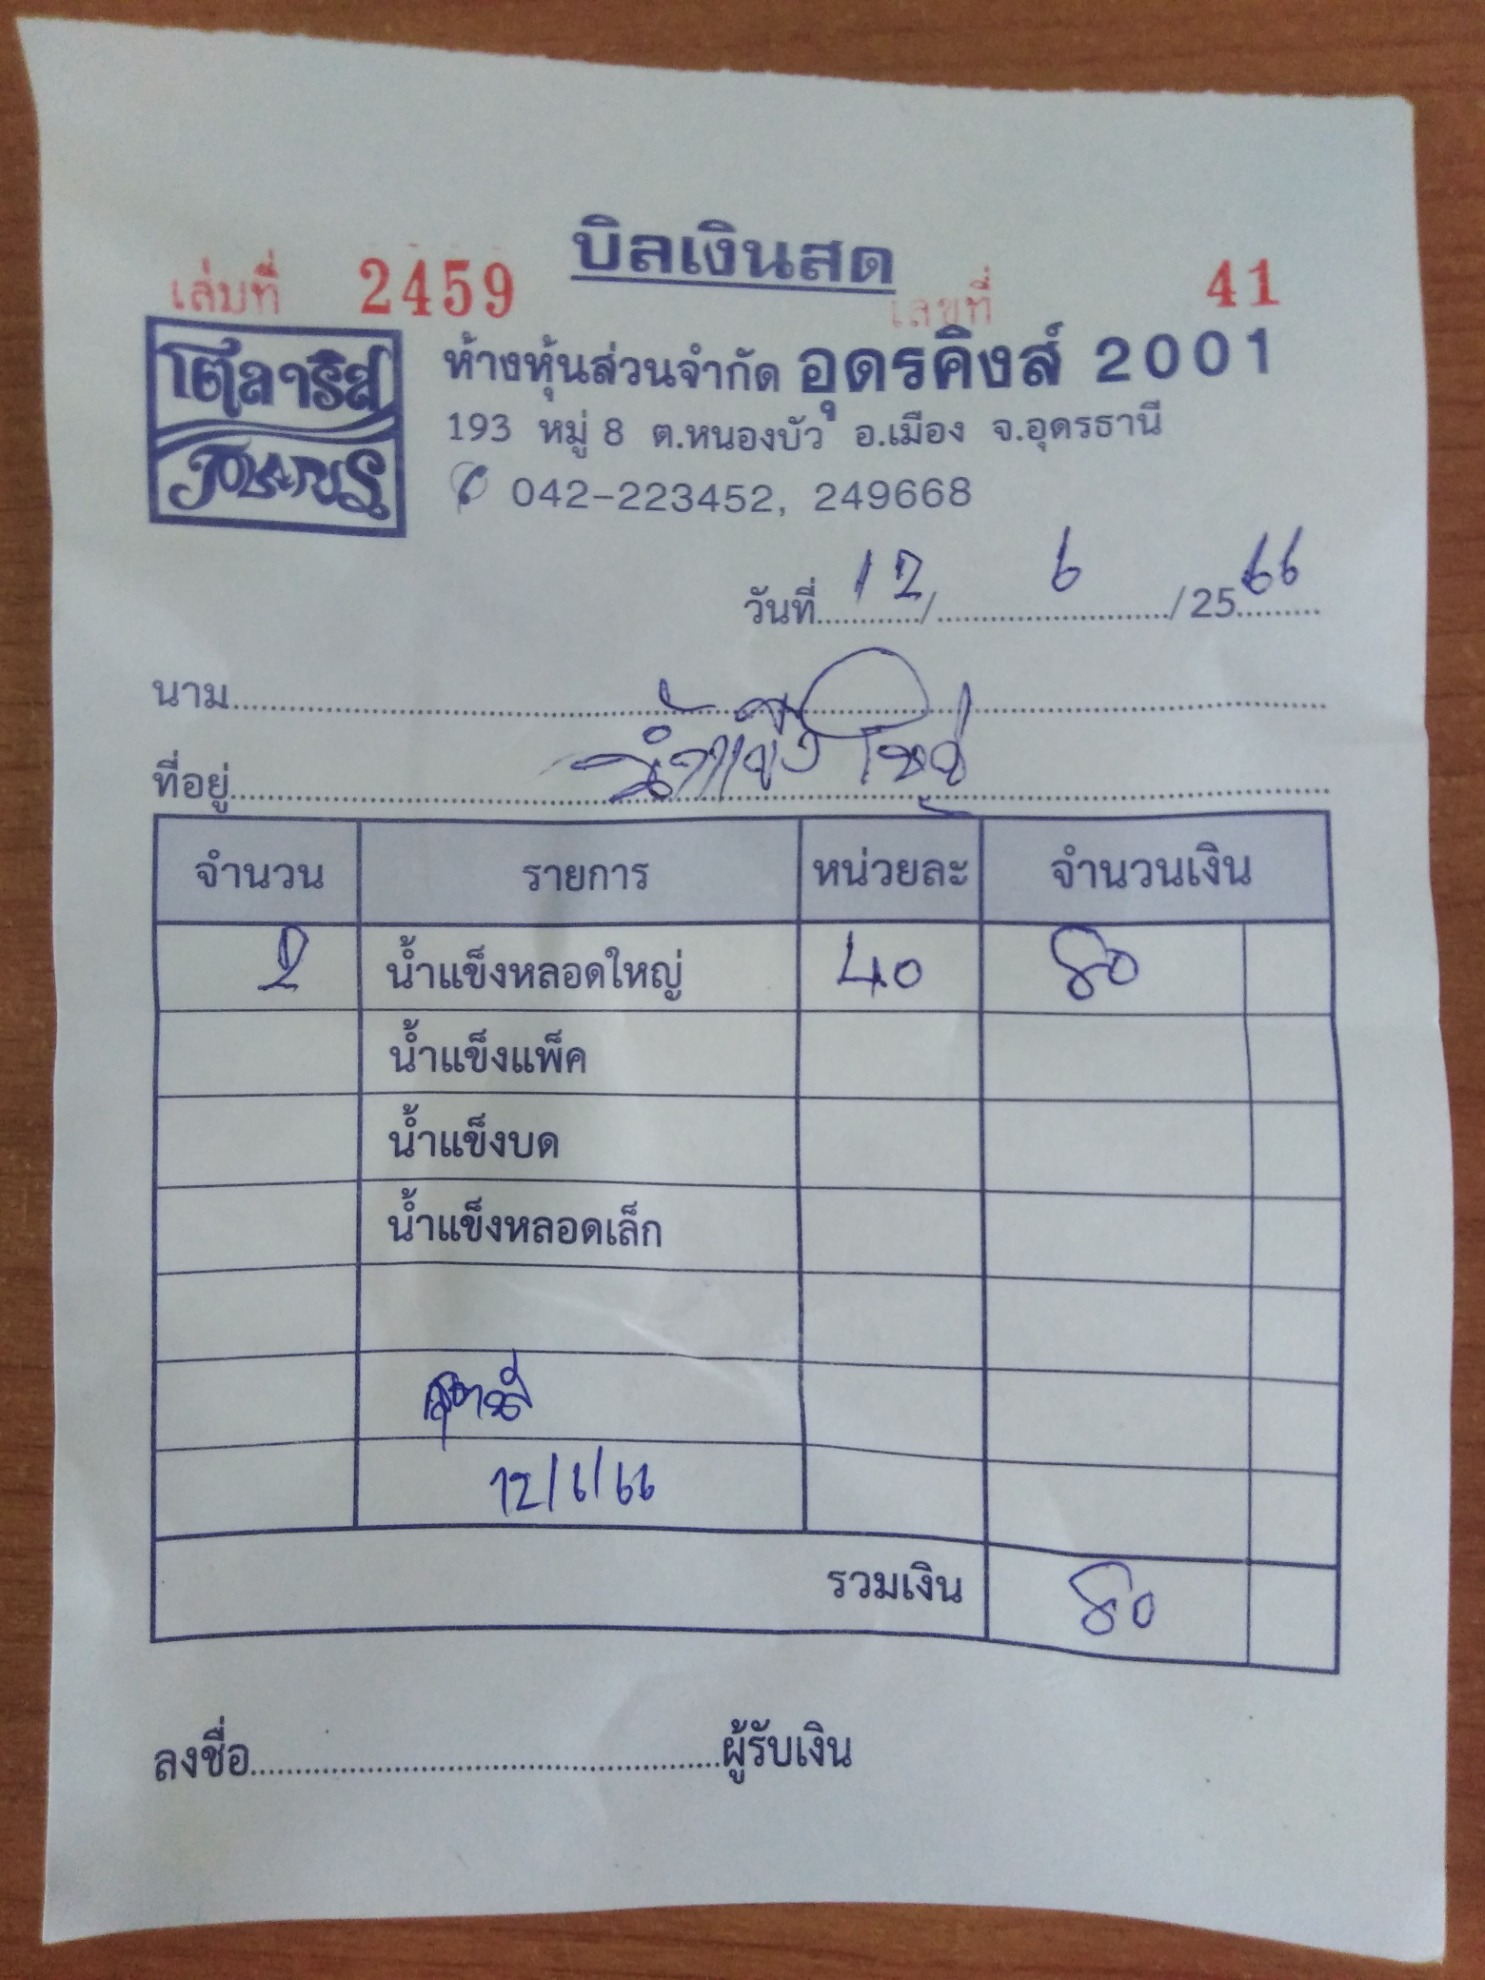 บิลเงินสด
เล่มที่ 2459 เลขที่ 41
โตลาริส
ห้างหุ้นส่วนจำกัด อุดรคิงส์ 2001
193 หมู่ 8 ต.หนองบัว อ.เมือง จ.อุดรธานี
042-223452, 249668
วันที่ 12 / 6 / 2566
นาม
ที่อยู่ น้ำแข็ง
จำนวน รายการ หน่วยละ จำนวนเงิน
2 น้ำแข็งหลอดใหญ่ 40 80
น้ำแข็งแพ็ค
น้ำแข็งบด
น้ำแข็งหลอดเล็ก
12/6/66
รวมเงิน 80
ลงชื่อ ผู้รับเงิน